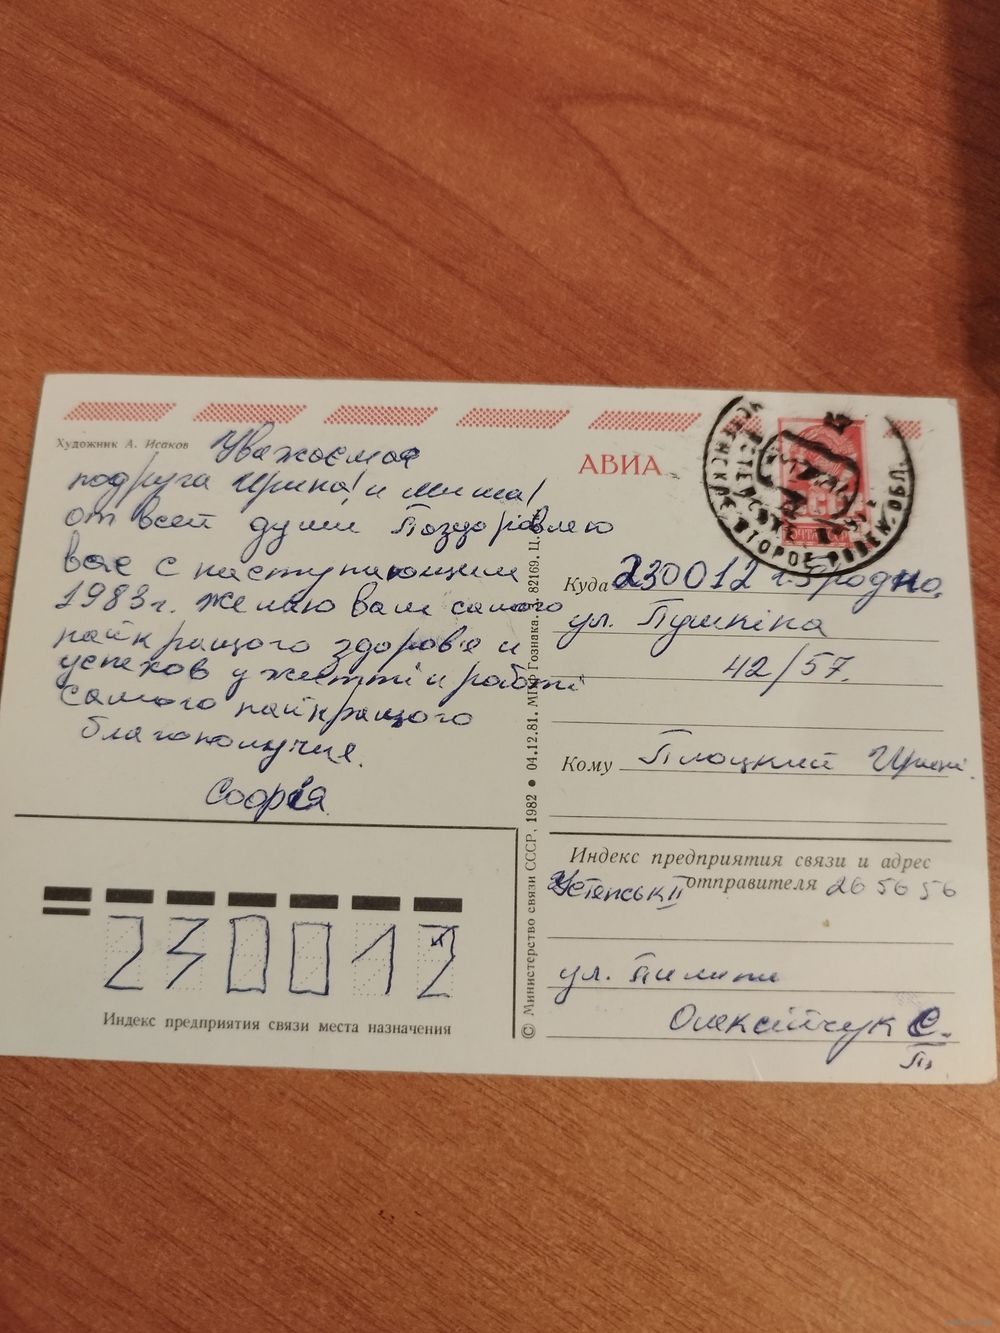 Художник А. Исаков
Уважаемая
подруга Ирина! и Миша!
от всей души Поздоровляю
вас с наступающим
1983г. желаю вам самого
найкращого здоровя и
успехов у житті и работі
самого найкращого
благополучия.
Софія
АВИА
Куда 230012 г. Гродно,
ул. Пушкіна
42/57.
Кому Плоцкий Ирині.
Индекс предприятия связи и адрес
отправителя 265656
Устенськ II
ул.
Олексійчук С.
П.
© Министерство связи СССР, 1982 • 04.12.81. МПФ Гознака. З. 82169. Ц.
230012
Индекс предприятия связи места назначения
УСТЕНСКОЕ ВТОРОЕ РОВЕН. ОБЛ.